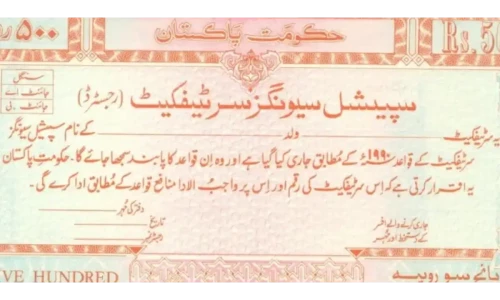 ۵۰۰ حکومتِ پاکستان Rs.50
سنگل
جائنٹ اے
جائنٹ بی
سپیشل سیونگز سرٹیفکیٹ (رجسٹرڈ)
یہ سرٹیفکیٹ ولد کے نام سپیشل سیونگز
سرٹیفکیٹ کے قواعد ۱۹۹۰ء کے مطابق جاری کیا گیا ہے اور وہ اِن قواعد کا پابند سمجھا جائے گا۔ حکومتِ پاکستان
یہ اقرار کرتی ہے کہ اِس سرٹیفکیٹ کی رقم اور اِس پر واجب الادا منافع قواعد کے مطابق ادا کرے گی۔
دفتر کی مُہر
جاری کرنے والے افسر
تاریخ
کے دستخط اور مُہر
رجسٹر نمبر
VE HUNDRED پانچ سو روپیہ